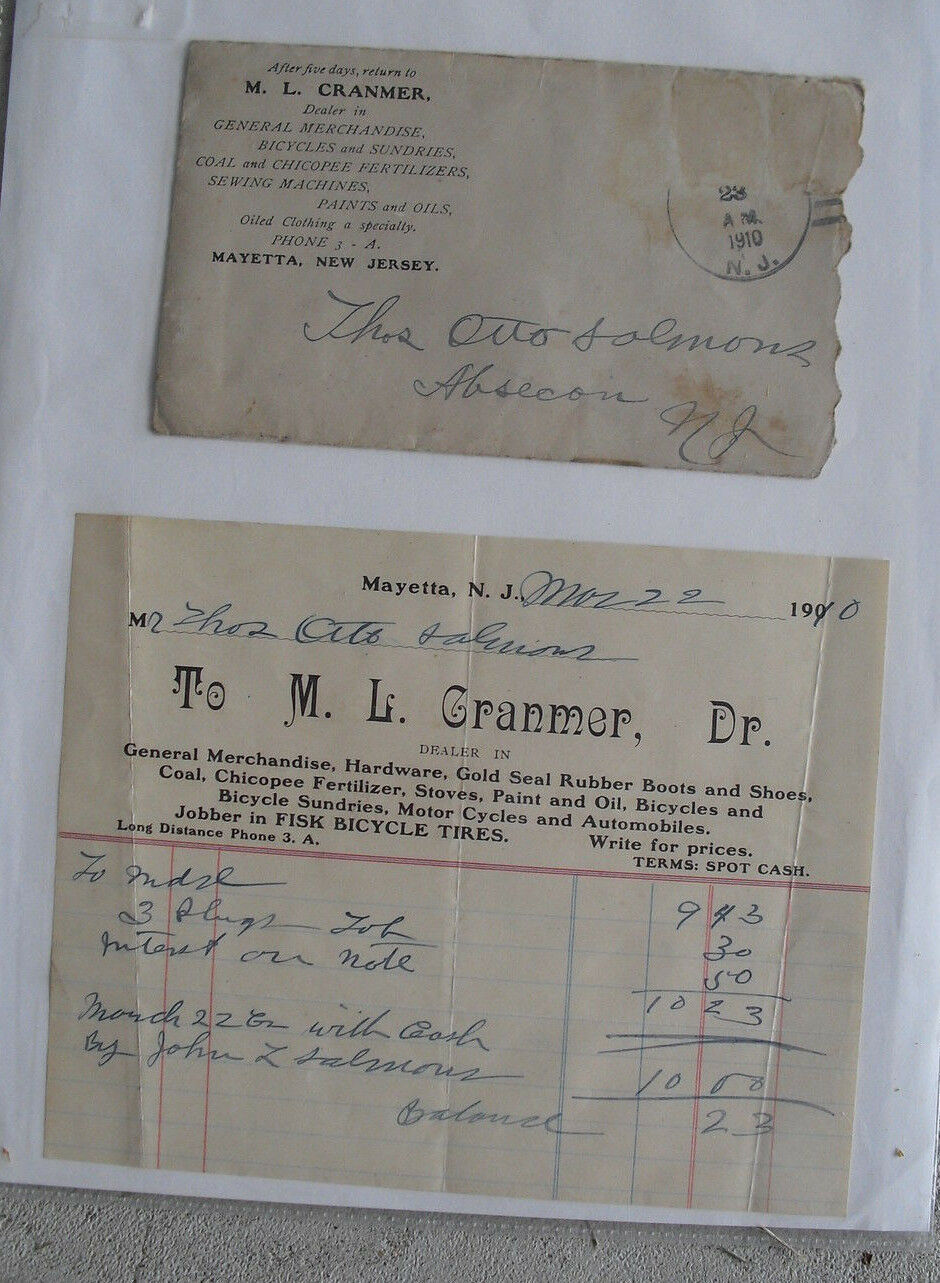 After five days, return to
M. L. CRANMER,
Dealer in
GENERAL MERCHANDISE,
BICYCLES and SUNDRIES,
COAL and CHICOPEE FERTILIZERS,
SEWING MACHINES,
PAINTS and OILS,
Oiled Clothing a specialty.
PHONE 3 - A.
MAYETTA, NEW JERSEY.
23
A M.
1910
N. J.
Thos Otto Salmons
Absecon
NJ
Mayetta, N. J., Mar 22 1910
Mr Thos Otto Salmons
To M. L. Cranmer, Dr.
DEALER IN
General Merchandise, Hardware, Gold Seal Rubber Boots and Shoes,
Coal, Chicopee Fertilizer, Stoves, Paint and Oil, Bicycles and
Bicycle Sundries, Motor Cycles and Automobiles.
Jobber in FISK BICYCLE TIRES. Write for prices.
Long Distance Phone 3. A. TERMS: SPOT CASH.
To Mdse 9 43
3 Plugs Tob 30
Interst on note 50
10 23
March 22 Cr with Cash
By John L Salmons 10 00
Balance 23